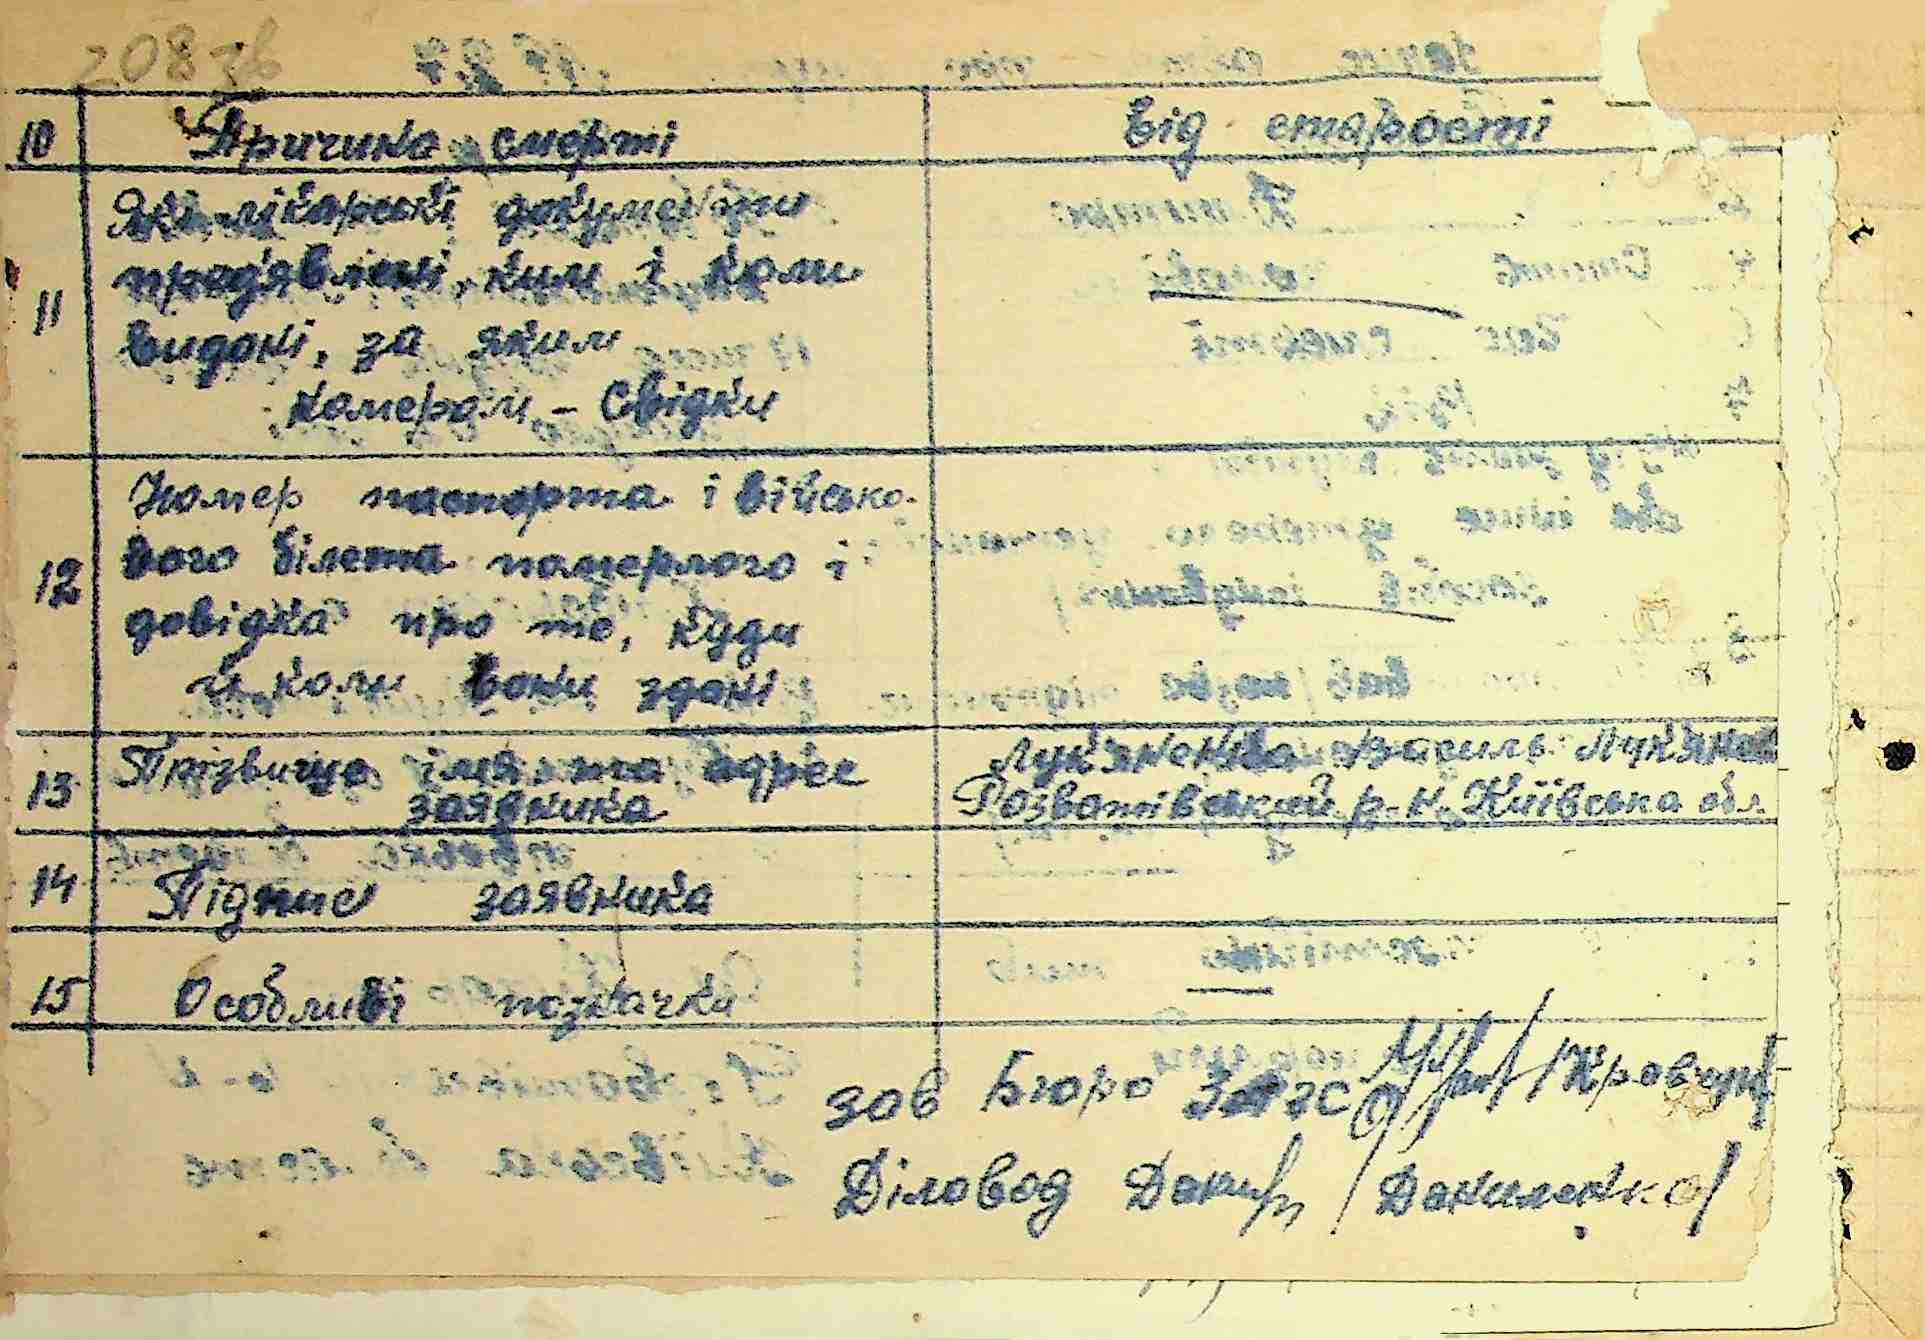 208 зв
10 Причина смерті Від старості
11 Які лікарські документи
пред'явлені, ким і коли
видані, за яким
номером - свідки
12 Номер паспорта і військо-
вого білета померлого і
довідка про те, куди
й коли вони здані
13 Прізвище ім'я та адрес Лук'яненко Василь Лук'янов
заявника Розватівський р-н, Київська обл.
14 Підпис заявника
15 Особливі позначки
Зав Бюро Загс /Кравчук/
Діловод /Даниленко/